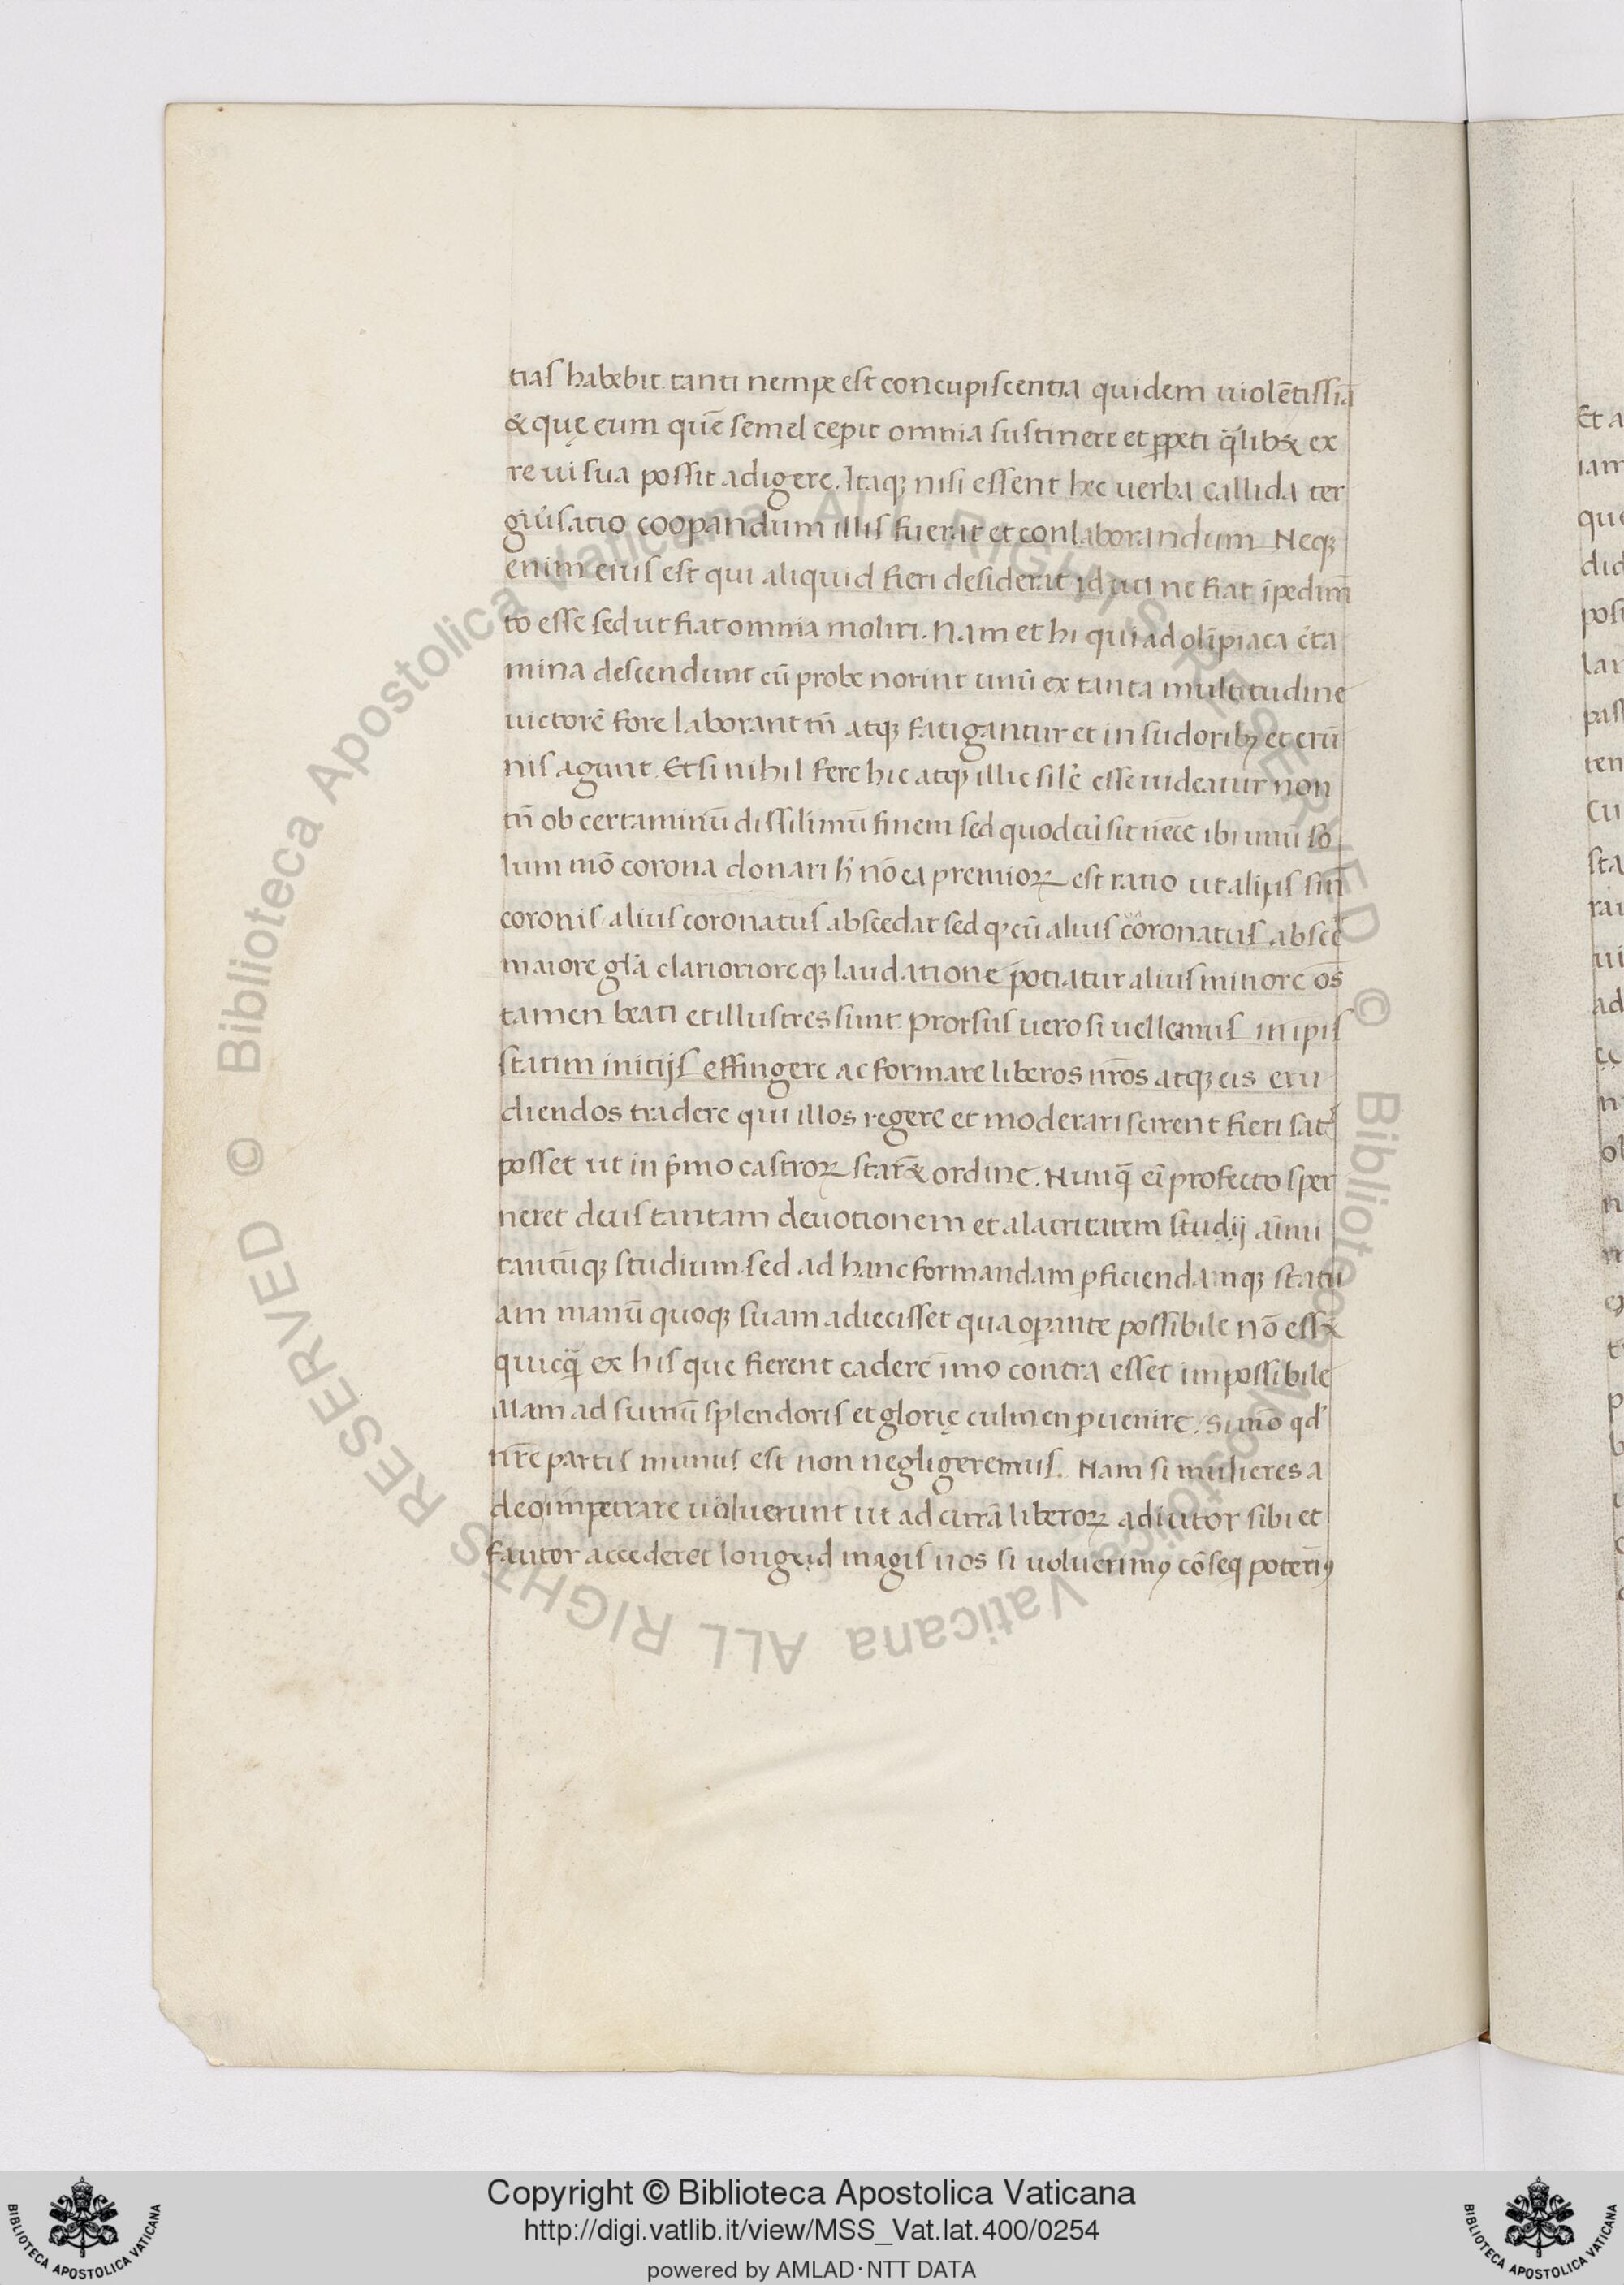 tias habebit. tanti nempe est concupiscentia quidem uiolētissīa
& quę eum quē semel cepit omnia sustinere et ꝑpeti q̄lib& ex
re ui sua possit adigere. Itaqꝫ nisi essent hec uerba callida ter
giũsatio cooꝑandum illis fuerat et conlaborandum Neqꝫ
enim eius est qui aliquid fieri desiderat id uti ne fiat īpedim̄
to esse sed ut fiat omnia moliri. Nam et hi qui ad olīpiaca c̄ta
mina descendunt cū probe norint unū ex tanta multitudine
uictorē fore laborant tn̄ atqꝫ fatigantur et in sudoribꝰ et erū
nis agunt. Et si nihil fere hic atqꝫ illic sile esse uideatur non
tn̄ ob certaminū dissilimū finem sed quod cū sit necē ibi unū so
lum mō corona donari h̓ nō ea premioꝝ est ratio ut alijs sin̄
coronis alius coronatus abscedat sed qꝫ cū alius coronatus abscē
maiore gl̄a clarioriore qꝫ laudatione potiatur alius minore os̄
tamen beati et illustres sunt. Prorsus uero si uellemus in ipīs
statim initijs effingere ac formare liberos nr̄os atqꝫ eis eru
diendos tradere qui illos regere et moderari scirent fieri sat
posset ut in p̄mo castroꝝ star& ordine. Nunq̄ eī profecto sper
neret deus tantam deuotionem et alacritatem studij aīmi
tantūqꝫ studium sed ad hanc formandam ꝑficiendamqꝫ statu
am manū quoqꝫ suam adiecisset qua oꝑante possibile nō ess&
quicq̄ ex his que fierent cadere imo contra esset impossibile
Nam ad sumū splendoris et glorię culmen ꝑuenire. Si mō qd̓
nr̄e partis munus est non negligeremus. Nam si mulieres a
deo impetrare uoluerunt ut ad curā liberoꝝ adiutor sibi et
fautor accederet longe id magis nos si uoluerimꝰ cōseq poterīꝰ
Copyright © Biblioteca Apostolica Vaticana
http://digi.vatlib.it/view/MSS_Vat.lat.400/0254
powered by AMLAD·NTT DATA